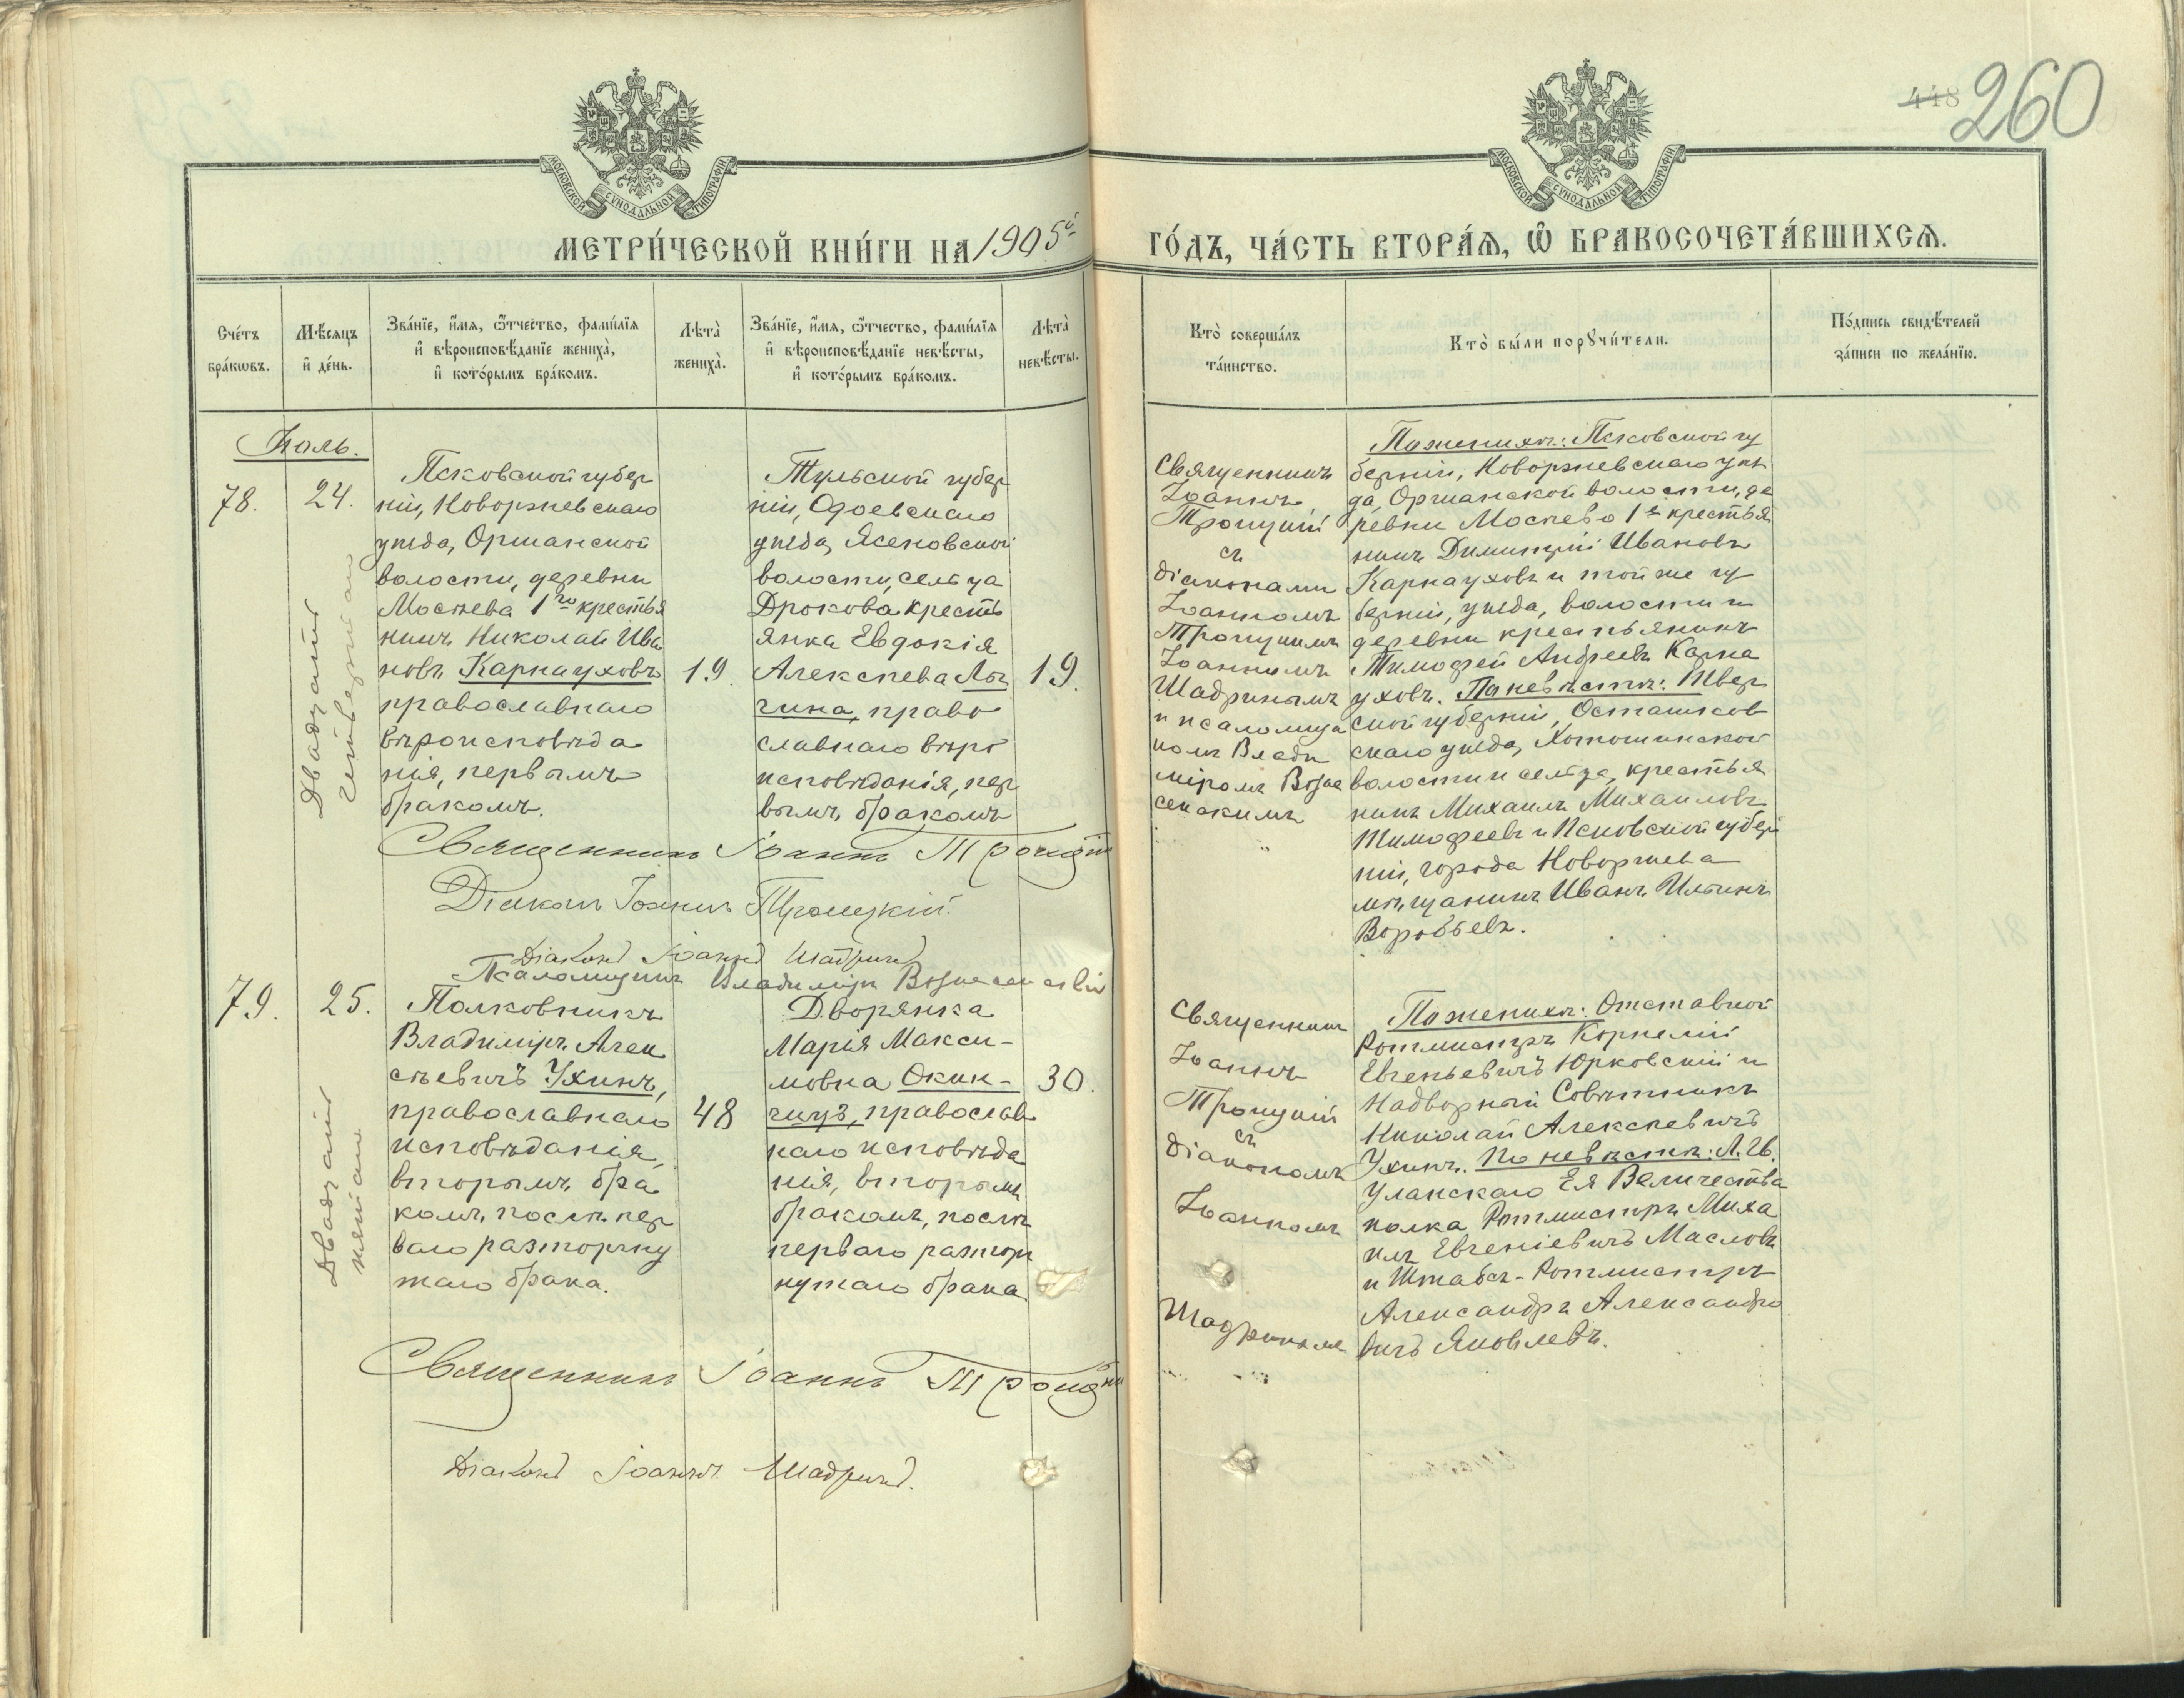 448 260
МОСКОВСКОЙ СѴНОДАЛЬНОЙ ТИПОГРАФІИ
МОСКОВСКОЙ СѴНОДАЛЬНОЙ ТИПОГРАФІИ
МЕТРИ́ЧЕСКОЙ КНИ́ГИ НА 1905й
ГО́ДЪ, ЧА́СТЬ ВТОРА́Ѧ, Ѽ БРАКОСОЧЕТА́ВШИХСѦ.
Сче́тъ
бра́кѡвъ.
Мѣ́сѧцъ
и҆ де́нь.
Зва́нїе, и҆́мѧ, ѻ҆́тчество, фами́лїѧ
и҆ вѣроисповѣ́данїе жениха̀,
и҆ кото́рымъ бра́комъ.
Лѣта̀
жениха̀.
Зва́нїе, и҆́мѧ, ѻ҆́тчество, фами́лїѧ
и҆ вѣроисповѣ́данїе невѣ́сты,
и҆ кото́рымъ бра́комъ.
Лѣта̀
невѣ́сты.
Кто̀ соверша́лъ
та́инство.
Кто̀ бы́ли порꙋчи́тели.
По́дпись свидѣ́телей
за́писи по жела́нїю.
Іюль.
78.
24.
Двадцать
четвертаго
Псковской губер
ніи, Новоржевскаго
уѣзда, Оршанской
волости, деревни
Москева 1го крестья
нинъ Николай Ива
новъ Карнауховъ
православнаго
вѣроисповѣда
нія, первымъ
бракомъ.
19.
Тульской губер
ніи, Одоевскаго
уѣзда, Ясеновской
волости, сельца
Дрокова крестья
янка Евдокія
Алексѣева Лы
чина, право
славнаго вѣро
исповѣданія, пер
вымъ бракомъ
19.
Священникъ
Іоаннъ
Троицкій
съ
діаконами
Іоанномъ
Троицкимъ
Іоанномъ
Шадринымъ
и псаломщи
комъ Влади
міромъ Возне
сенскимъ
По женихѣ: Псковской гу
берніи, Новоржевскаго уѣз
да, Оршанской волости, де
ревни Москево 1е крестья
нинъ Димитрій Ивановъ
Карнауховъ и той же гу
берніи, уѣзда, волости и
деревни крестьянинъ
Тимофей Андреевъ Карна
уховъ. По невѣстѣ: Твер
ской губерніи, Осташков
скаго уѣзда, Хотошинской
волости и сельца, крестья
нинъ Михаилъ Михаиловъ
Тимофеевъ и Псковской губер
ніи, города Новоржева
мѣщанинъ Иванъ Ильинъ
Воробьевъ.
Священникъ Іоаннъ Троицкій
Діаконъ Іоаннъ Троицкій.
Діаконъ Іоаннъ Шадринъ
Псаломщикъ Владиміръ Вознесенскій
79.
25.
Двадцать
пятаго
Полковникъ
Владиміръ Алек
сѣевичъ Ухинъ,
православнаго
исповѣданія,
вторымъ бра
комъ, послѣ пер
ваго расторгну
таго брака.
48
Дворянка
Марія Макси-
мовна Окин-
чицъ, православ
наго исповѣда
нія, вторымъ
бракомъ, послѣ
перваго расторг
нутаго брака.
30.
Священникъ
Іоаннъ
Троицкій
съ
діакономъ
Іоанномъ
Шадринымъ
По женихѣ: Отставной
Ротмистръ Корнелій
Евгеньевичъ Юрковскій и
Надворный Совѣтникъ
Николай Алексѣевичъ
Ухинъ. По невѣстѣ: Л. Гв.
Уланскаго Ея Величества
полка Ротмистръ Миха
илъ Евгеніевичъ Масловъ
и Штабсъ-Ротмистръ
Александръ Александро
вичъ Яковлевъ.
Священникъ Іоаннъ Троицкій
Діаконъ Іоаннъ Шадринъ.